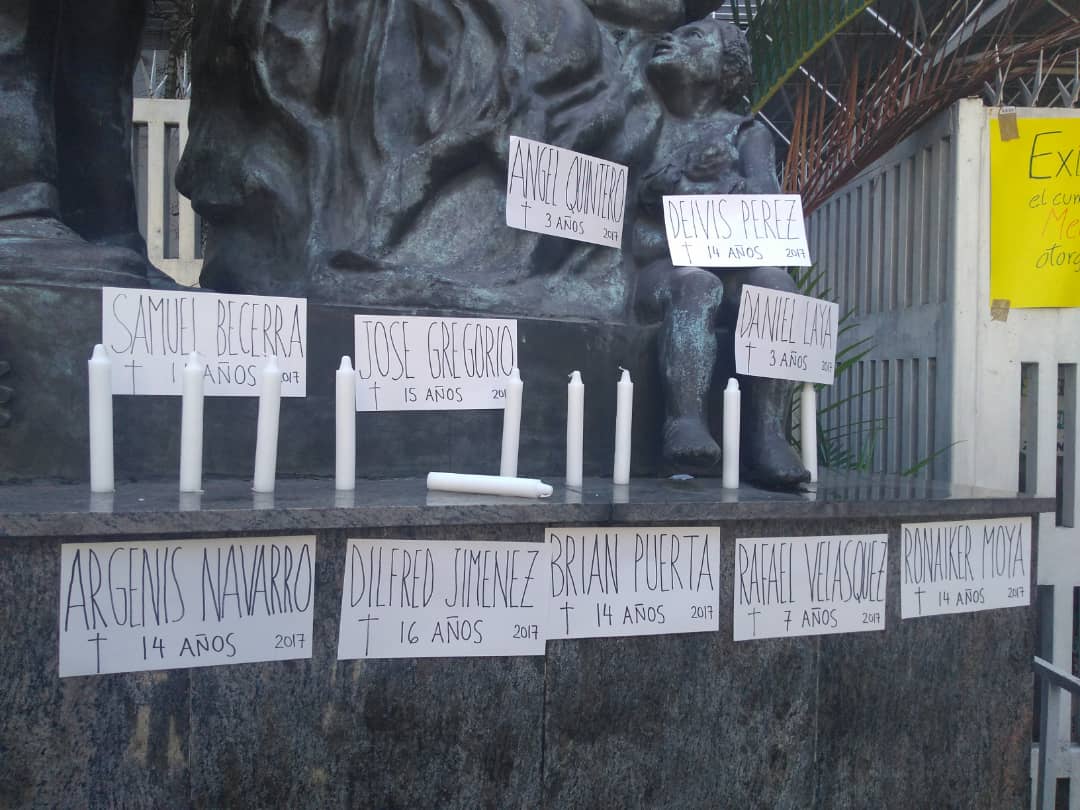 ANGEL QUINTERO
† 3 AÑOS 2017
DEIVIS PEREZ
† 14 AÑOS 2017
SAMUEL BECERRA
† AÑOS 2017
JOSE GREGORIO
† 15 AÑOS
DANIEL LAYA
† 3 AÑOS 2017
el
Me
otorg
ARGENIS NAVARRO
† 14 AÑOS 2017
DILFRED JIMENEZ
† 16 AÑOS 2017
BRIAN PUERTA
† 14 AÑOS 2017
RAFAEL VELASQUEZ
† 7 AÑOS 2017
RONAIKER MOYA
† 14 AÑOS 2017